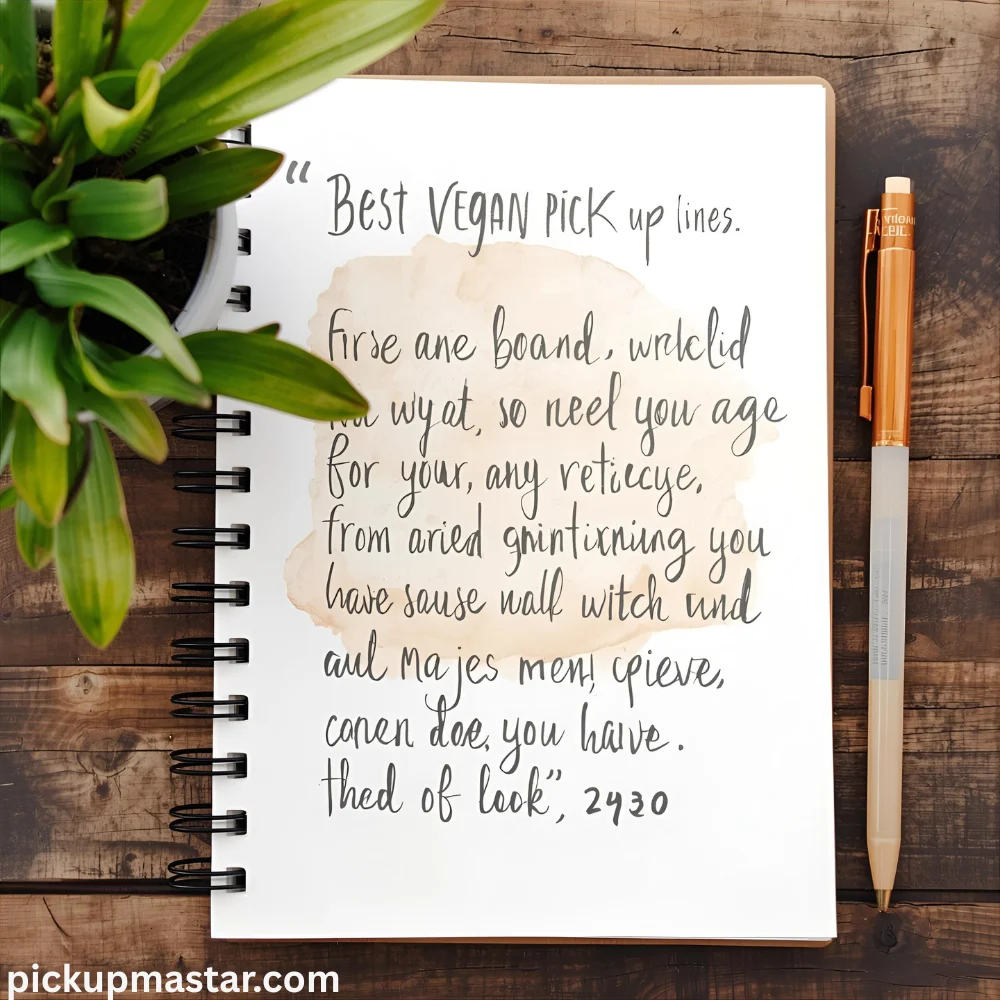 “ Best VEGAN PICK up lines.
Firse ane boand, wrklclid
wyat, so neel you age
for your, any reticcye,
from aried gmintixniung you
have sause wall witch und
aul majes men!, cpieve,
canen doe, you haive.
thed of look”, 2430
pickupmastar.com